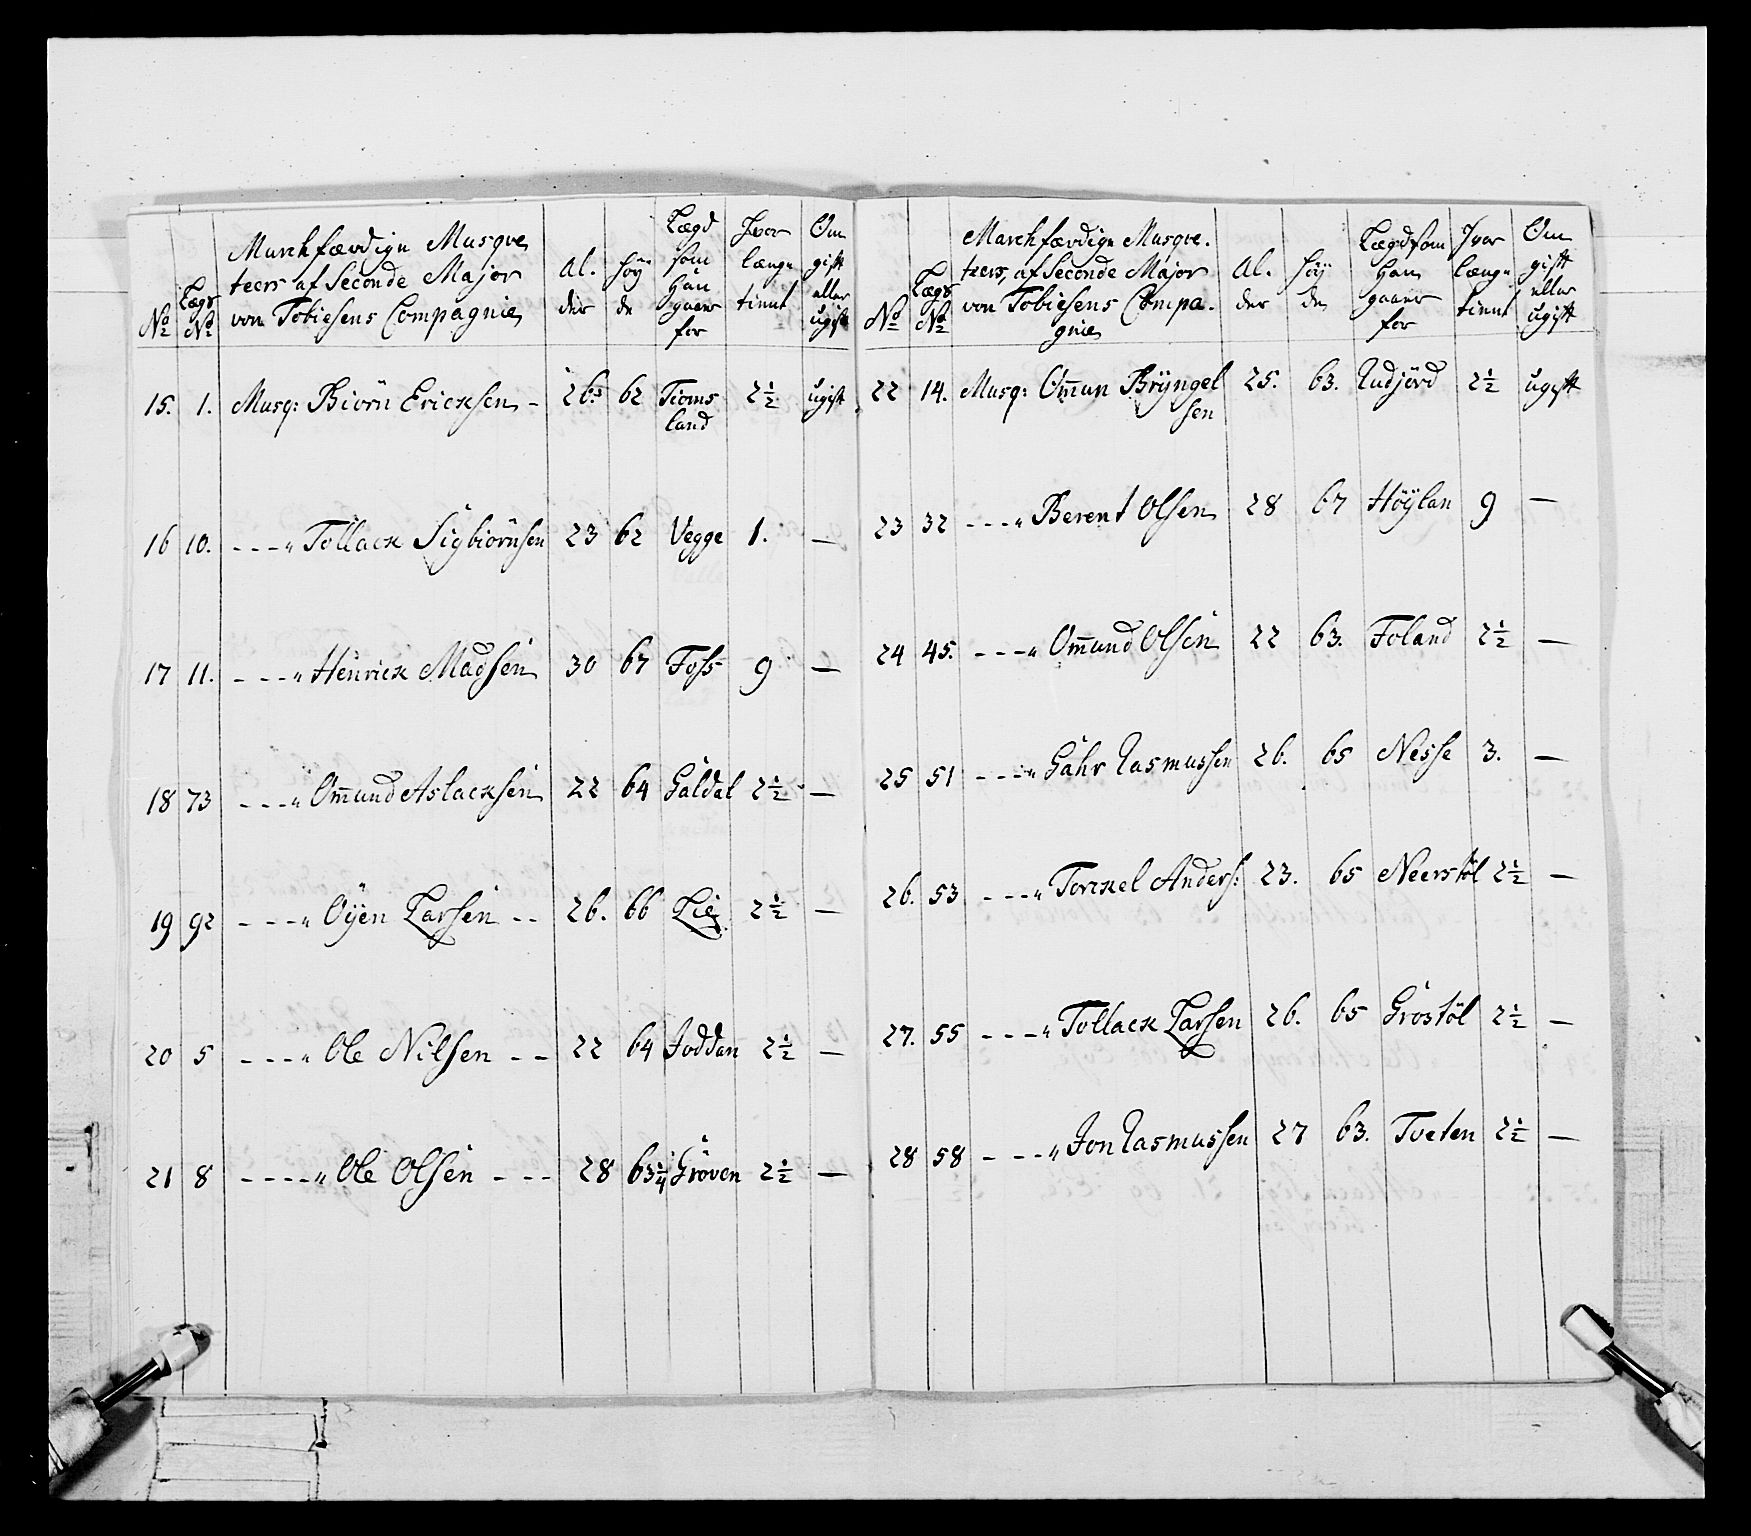 No | Lægs No | Marchfærdige Musqve
teers af Seconde Major
von Tobiesens Compagnie | Al.
der | Höy
de | Lægd
som
Han
gaaer
for | Hvor
længe
tient | Om
gift
eller
ugift
15. | 1. | Musq: Biörn Ericksen - | 26. | 62 | Tioms
land | 2½ | ugift
16 | 10. | ---" Tollack Sigbiörnsen | 23 | 62 | Vegge | 1. | —
17 | 11. | ---" Henrick Madsen | 30 | 67 | Foss | 9 | —
18 | 73 | ---" Om̅und Aslacksen | 22 | 64 | Galdal | 2½ | —
19 | 92 | ---" Oÿen Larsen -- | 26. | 66 | Lie | 2½ | —
20 | 5 | ---" Ole Nilsen -- | 22 | 64 | Joddan | 2½ | —
21 | 8 | ----" Ole Olsen --- | 28 | 63¼ | Gröven | 2½ | —
No | Lægs No | Marchfærdige Musqve.
teers, af Seconde Major
von Tobiesens Compa.
gnie | Al.
der | Höÿ
de | Lægd som
Han
gaaer
for | Hvor
længe
tient | Om
gift
eller
ugift
22 | 14. | Musq: Om̅un Brÿngel
sen | 25. | 63. | Udjörd | 2½ | ugift
23 | 32 | ---" Berent Olsen | 28 | 67 | Höÿlan | 9 | —
24 | 45. | ---" Om̅und Olsen | 22 | 63. | Foland | 2½ | —
25 | 51 | ---" Gahr Rasmussen | 26. | 65 | Nesse | 3. | —
26. | 53 | ---" Torckel Anders: | 23. | 65 | Neerstöl | 2½ | —
27. | 55 | ---" Tollack Larsen | 26. | 65 | Grostöl | 2½ | —
28 | 58 | ---" Jon Rasmussen | 27 | 63. | Tveten | 2½ | —